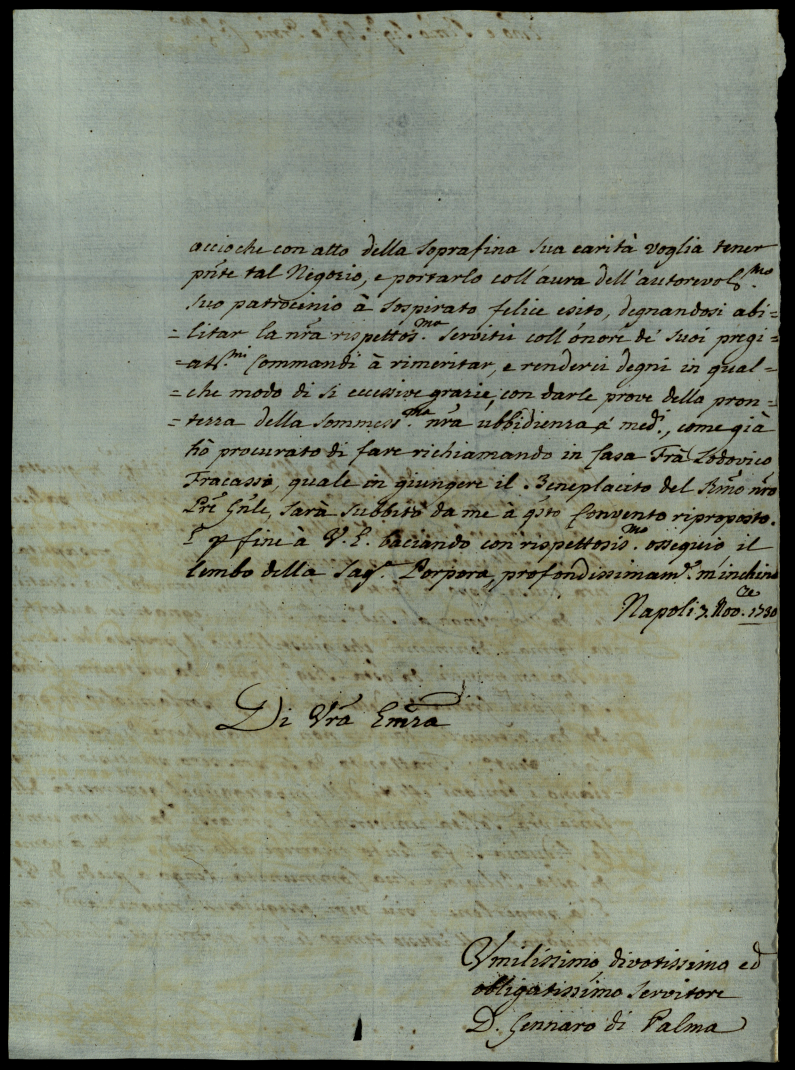 accioche con atto della soprafina sua carità voglia tener
pñte tal Negozio, e portarlo coll'aura dell'autorevol.mo
suo patrocinio à sospirato felice esito, degnandosi abi=
=litar la nr̃a rispettos.ma servitù coll'onore de' suoi pregi=
=at.mi Commandi à rimeritar, e renderci degni in qual=
=che modo di sì eccessive grazie, con darle prove della pron=
=tezza della sommess.ma nr̃a ubbidienza a' med.i, come già
hò procurato di fare richiamando in Casa Frà Lodovico
Fracasso, quale in giungere il Beneplacito del Rm̃o nr̃o
Prẽ Gnl̃e, sarà subbito da me à q̃sto Convento riproposto.
E p fine à V. E. baciando con rispettosis.mo ossequio il
lembo della Sag.a Porpora, profondissimam.e m'inchino
Napoli 7. Nov.bre 1730
Di Vr̃a Em̃za
Umilissimo, divotissimo, ed
obligatissimo servitore
D. Gennaro di Palma